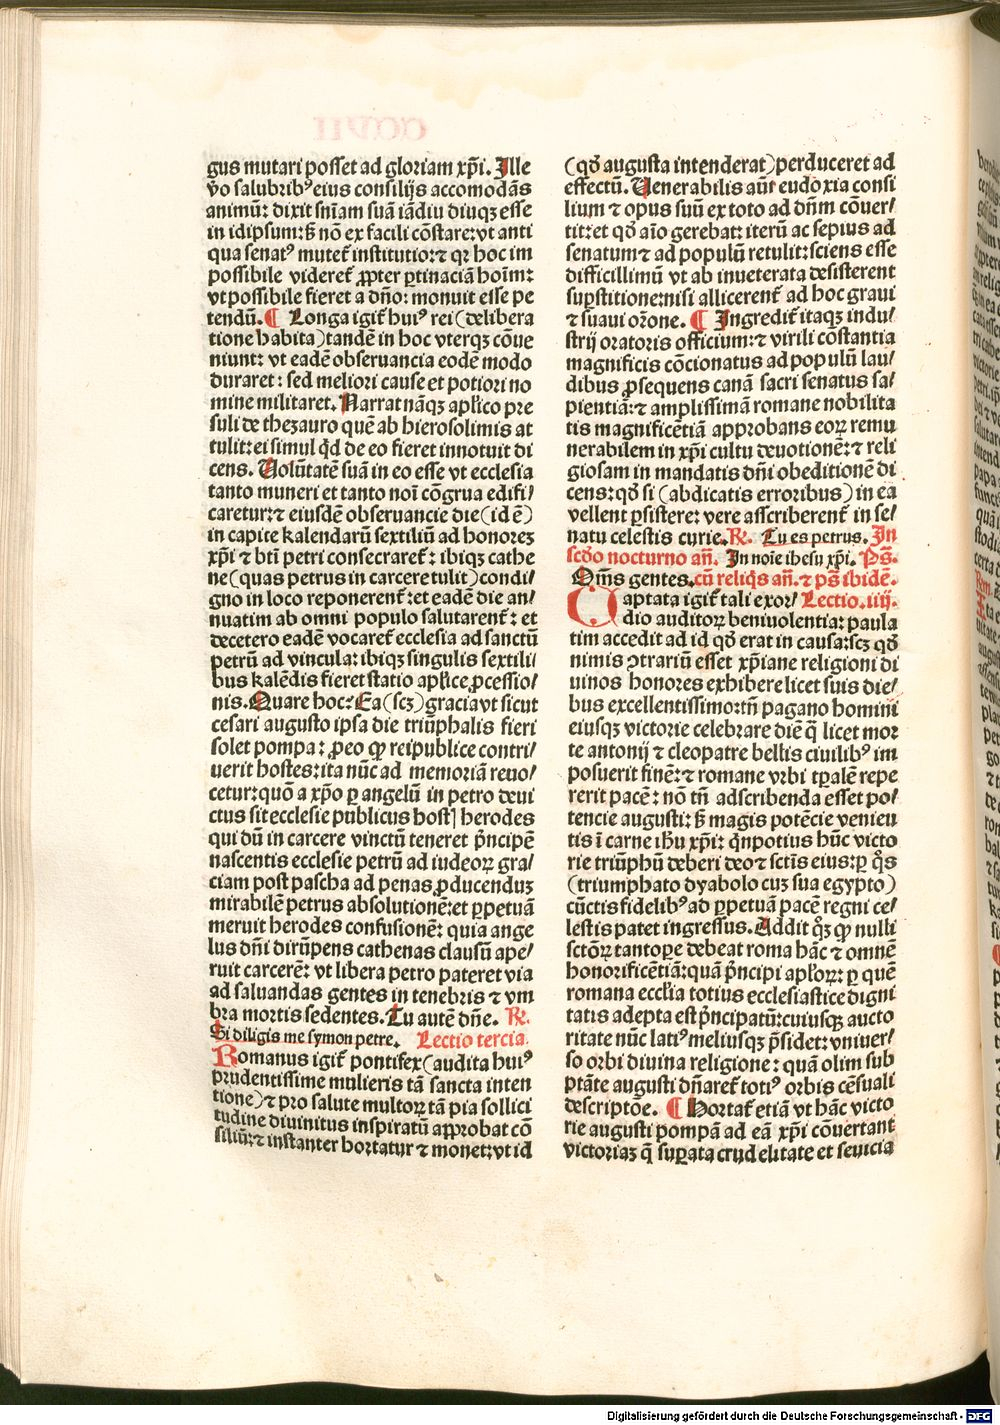 gus mutari posset ad gloriam xp̄i. Ille
v̄o salubribꝰ eius consilijs accomodās
animū: dixit sn̄iam suā iādiu diuqꝫ esse
in idipsum: ꝭ nō ex facili cōstare: vt anti
qua senatꝰ mutet᷑ institutio: ⁊ qꝛ hoc im
possibile videret᷑ ꝓpter ꝑtinaciā hoīm:
vt possibile fieret a dn̄o: monuit esse pe
tendū. ¶ Longa igit᷑ huiꝰ rei (delibera
tione habita) tandē in hoc vterqꝫ cōue
niunt: vt eadē obseruancia eodē modo
duraret: sed meliori cause et potiori no
mine militaret. Narrat nāqꝫ apl̓ico pre
suli de thezauro quē ab hierosolimis at
tulit: ei simul qd̓ de eo fieret innotuit di
cens. Uolūtatē suā in eo esse vt ecclesia
tanto muneri et tanto noī cōgrua edifi⸗
caretur: ⁊ eiusdē obseruancie die (id ē)
in capite kalendarū sextiliū ad honorez
xp̄i ⁊ bt̄i petri consecraret᷑: ibiqꝫ cathe
ne (quas petrus in carcere tulit) condi⸗
gno in loco reponerent᷑: et eadē die an⸗
nuatim ab omni populo salutarent᷑: et
decetero eadē vocaret᷑ ecclesia ad sanctū
petrū ad vincula: ibiqꝫ singulis sextili⸗
bus kalēdis fieret statio apl̓ice ꝓcessio⸗
nis. Quare hoc: Ea (scꝫ) gracia vt sicut
cesari augusto ipsa die triūphalis fieri
solet pompa: ꝓ eo qꝙ reipublice contri⸗
uerit hostes: ita nūc ad memoriā reuo⸗
cetur: quō a xp̄o ꝑ angelū in petro deui
ctus sit ecclesie publicus hostꝭ herodes
qui dū in carcere vinctū teneret p̄ncipē
nascentis ecclesie petrū ad iudeoꝝ gra⸗
ciam post pascha ad penas ꝓducenduꝫ
mirabilē petrus absolutionē: et ꝑpetuā
meruit herodes confusionē: quia ange
lus dn̄i dirūpens cathenas clausū ape⸗
ruit carcerē: vt libera petro pateret via
ad saluandas gentes in tenebris ⁊ vm
bra mortis sedentes. Tu autē dn̄e. R̷.
Si diligis me symon petre. Lectio tercia.
Romanus igit᷑ pontifex (audita huiꝰ
prudentissime mulieris tā sancta inten
tione) ⁊ pro salute multoꝝ tā pia sollici
tudine diuinitus inspiratū approbat cō
siliū: ⁊ instanter hortatur ⁊ monet: vt id
(qd̓ augusta intenderat) perduceret ad
effectū. Uenerabilis aūt eudoxia consi
lium ⁊ opus suū ex toto ad dn̄m cōuer⸗
tit: et qd̓ aīo gerebat: iterū ac sepius ad
senatum ⁊ ad populū retulit: sciens esse
difficillimū vt ab inueterata desisterent
suꝑstitione: nisi allicerent᷑ ad hoc graui
⁊ suaui or̄one. ¶ Ingredit᷑ itaqꝫ indu⸗
strij oratoris officium: ⁊ virili cōstantia
magnificis cōcionatus ad populū lau⸗
dibus ꝓsequens canā sacri senatus sa⸗
pientiā: ⁊ amplissimā romane nobilita
tis magnificētiā approbans eoꝝ remu
nerabilem in xp̄i cultu deuotionē: ⁊ reli
giosam in mandatis dn̄i obeditionē di
cens: qd̓ si (abdicatis erroribus) in ea
vellent ꝑsistere: vere asscriberent᷑ in se⸗
natu celestis curie. R̷. Tu es petrus. In
scd̓o nocturno an̄. In noīe ihesu xp̄i. Ps̄.
Om̄s gentes. cū reliqͥs an̄. ⁊ ps̄ ibidē.
Captata igit᷑ tali exor⸗ Lectio. iiij.
dio auditoꝝ beniuolentia: paula
tim accedit ad id qd̓ erat in causa: scꝫ qd̓
nimis ꝯtrariū esset xp̄iane religioni di
uinos honores exhibere licet suis die⸗
bus excellentissimo: tn̄ pagano homini
eiusqꝫ victorie celebrare diē q̄ licet mor
te antonij ⁊ cleopatre bellis ciuilibꝰ im
posuerit finē: ⁊ romane vrbi tꝑalē repe
rerit pacē: nō tn̄ adscribenda esset po⸗
tencie augusti: ꝭ magis potēcie venieu
tis ī carne ih̓u xp̄i: qͥnpotius hūc victo
rie triūphū deberi deo ⁊ sctīs eius: ꝑ qͦs
(triumphato dyabolo cuꝫ sua egypto)
cūctis fidelibꝰ ad ꝑpetuā pacē regni ce⸗
lestis patet ingressus. Addit qͦꝫ qꝙ nulli
sctōꝝ tantope debeat roma hāc ⁊ omnē
honorificētiā: quā p̄ncipi apl̓oꝝ: ꝑ quē
romana eccl̓ia totius ecclesiastice digni
tatis adepta est p̄ncipatū: cuiusqꝫ aucto
ritate nūc latiꝰ meliusqꝫ p̄sidet: vniuer⸗
so orbi diuina religione: quā olim sub
ptāte augusti dn̄aret᷑ totiꝰ orbis cēsuali
descriptōe. ¶ Hortat᷑ etiā vt hāc victo
rie augusti pompā ad eā xp̄i cōuertant
victoriaꝫ q̄ suꝑata crudelitate et seuicia
Digitalisierung gefördert durch die Deutsche Forschungsgemeinschaft - DFG